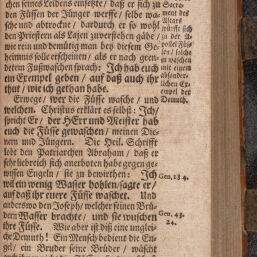 chen seines Leidens einsetzte / daß er sich zu
den Füssen der Jünger werffe / selbe wa-
sche und abtrockne / dardurch er so wohl
den Priestern als Lajen zuverstehen gäbe /
wie rein und demütig man bey diesem Ge-
heimnus solle erscheinen / als er nach gete-
deren Fußwaschen sprach: Ich hab euch
ein Exempel geben / auf daß auch ihr
thut / wie ich gethan habe.
Erwege / wer die Füsse wasche / und
welchen. Christus erklärt es selbst: Ich /
spricht Er / der HErr und Meister hab
euch die Füsse gewaschen / meinen Die-
nern und Jüngern. Die Heil. Schrifft
lobt den Patriarchen Abraham / daß er
sehr liebreich sich anerboten habe gegen ge-
wissen Engeln / sie zu bewirthen: Ich
wil ein wenig Wasser hohlen / sagte er /
auf daß ihr euere Füsse waschet. Und
anderswo den Joseph / welcher seinen Brü-
dern Wasser brachte / und sie wuschen
ihre Füsse. Wie aber ist diß eine unglei-
che Demuth! Ein Mensch bediente die En-
gel / ein Bruder seine Brüder / wäscht
Sacra-
ment des
Altars
würfft sich
zu der A-
postel Füs-
sen / solche
zu waschen
mit einem
Exempel der
Demuth.
Gen. 18 4.
Gen. 43.
24.